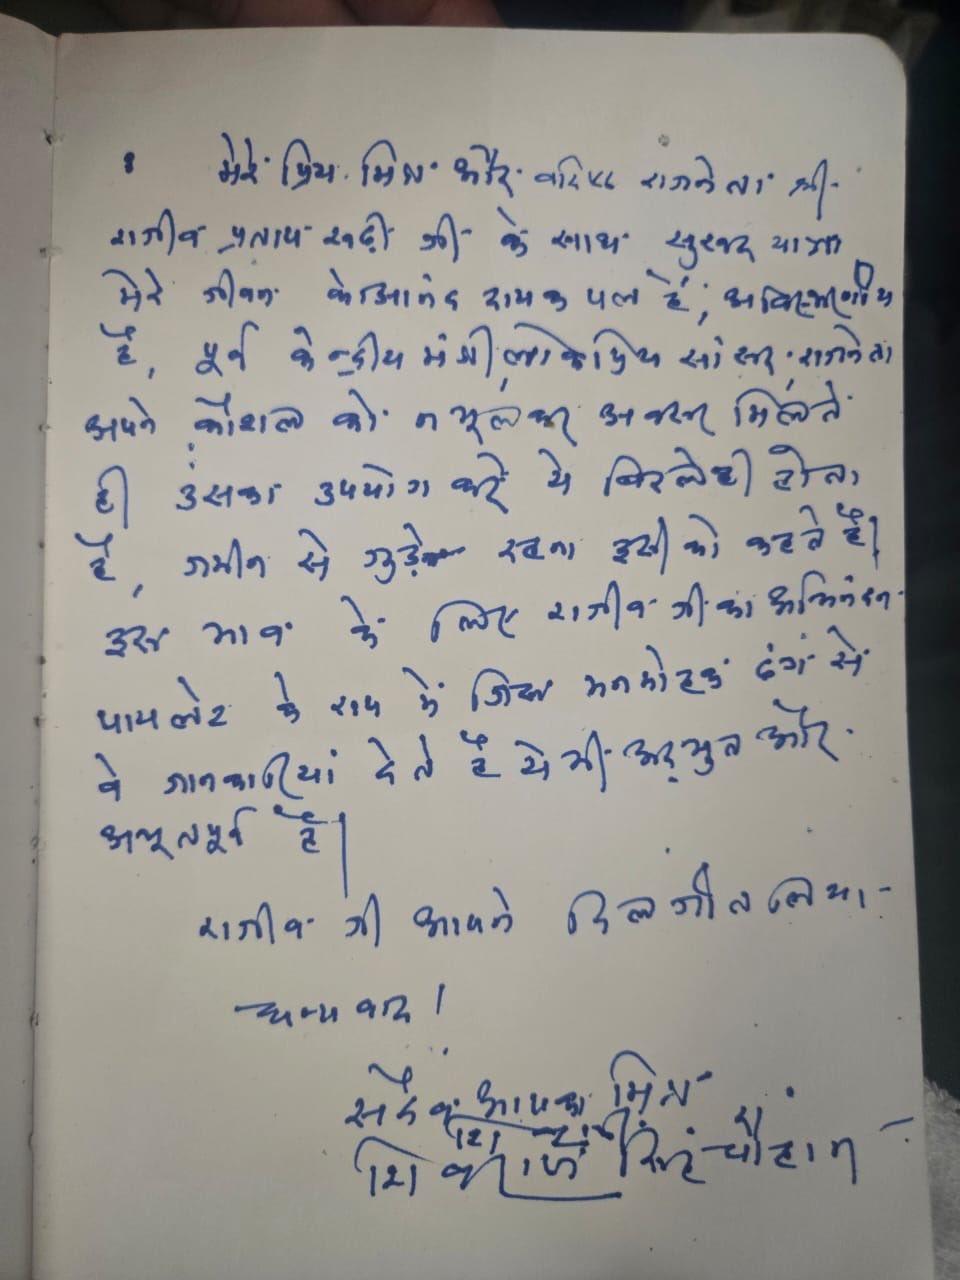 मेरे प्रिय मित्र और वरिष्ठ राजनेता श्री
राजीव प्रताप रूढ़ी जी के साथ सुखद यात्रा
मेरे जीवन के आनंद दायक पल हैं, अविस्मरणीय
है, पूर्व केन्द्रीय मंत्री, लोकप्रिय सांसद, राजनेता
अपने कौशल को न भूलकर अवसर मिलते
ही उसका उपयोग करे ये विरले ही होता
है, जमीन से जुड़े रहना इसी को कहते हैं।
इस भाव के लिए राजीव जी का अभिनंदन
पायलेट के रूप में जिस मनमोहक ढंग से
वे जानकारियां देते है ये भी अद्भुत और
अभूतपूर्व है।
राजीव जी आपने दिल जीत लिया
धन्यवाद।
सदैव आपका मित्र
शिवराज सिंह चौहान